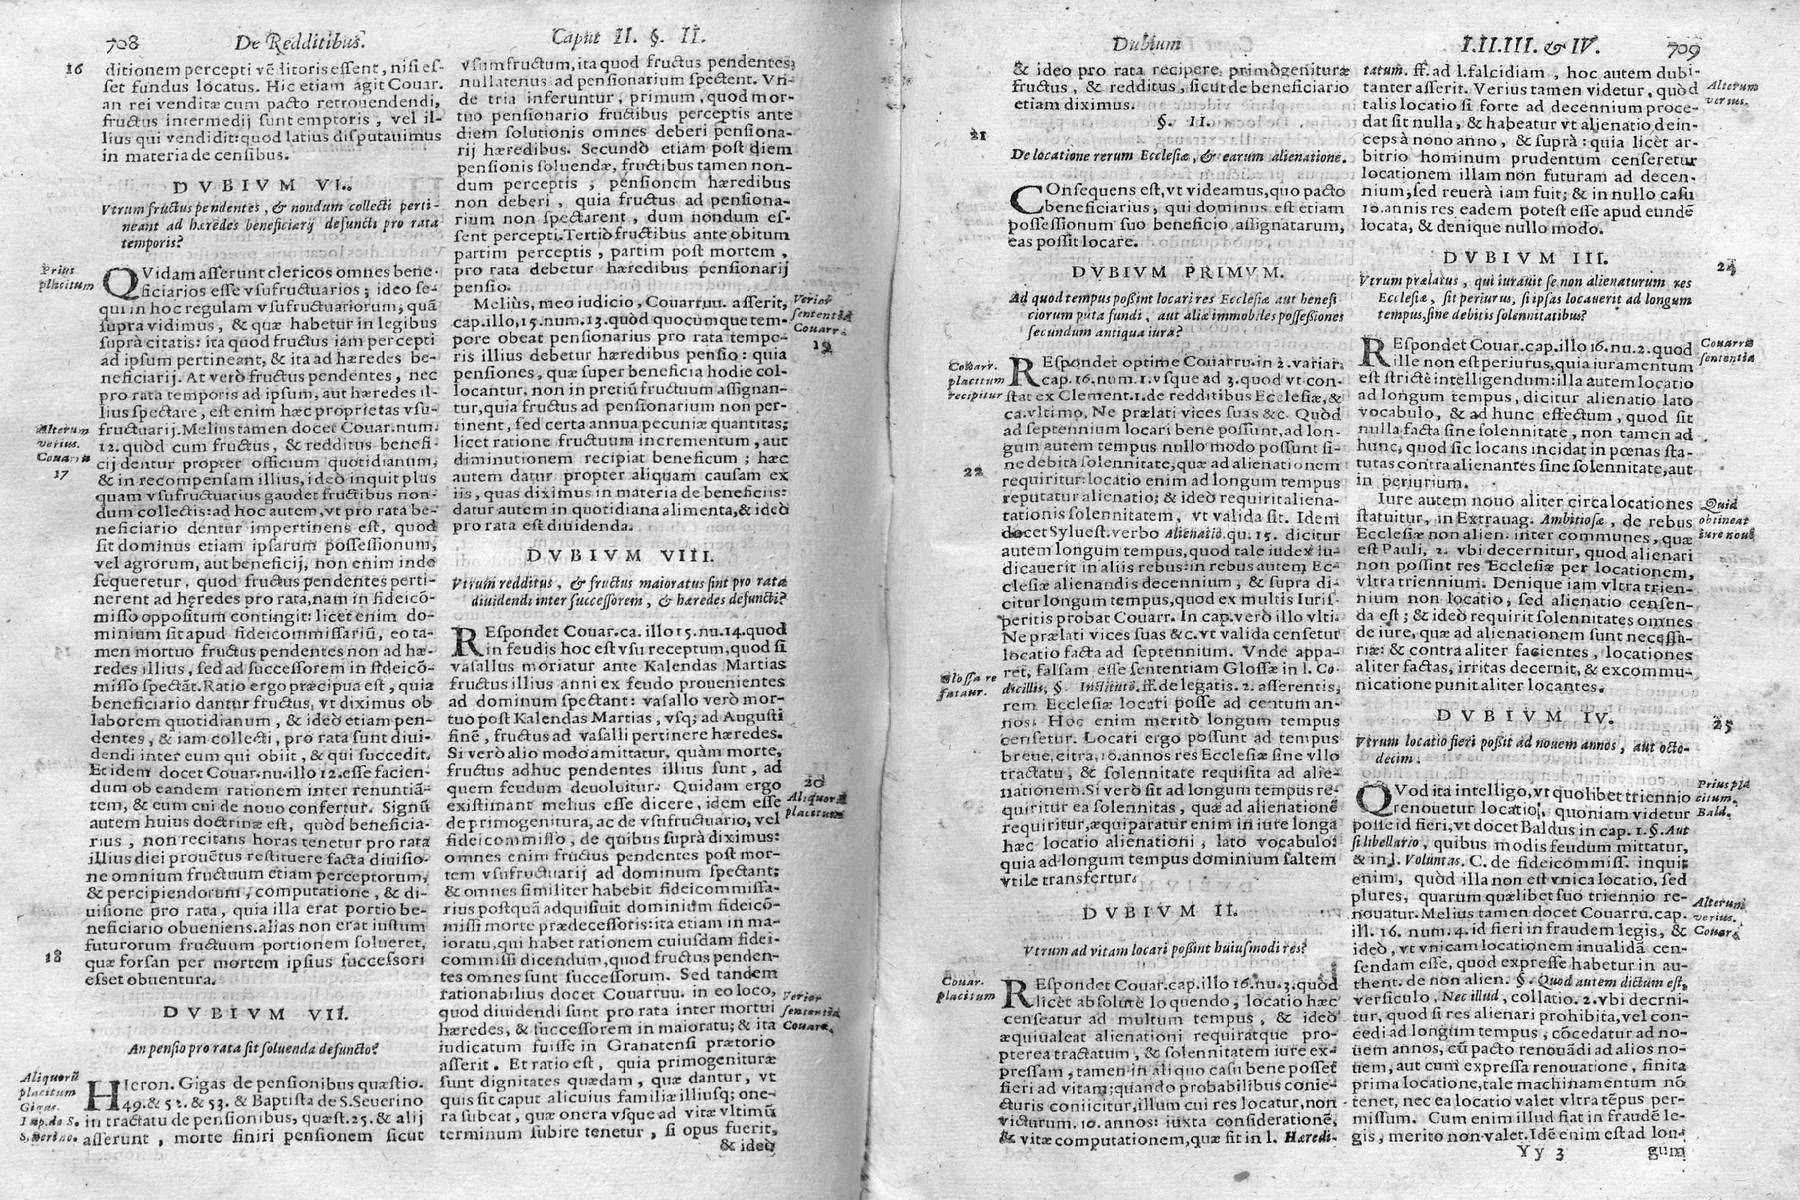 708 De Redditibus. Caput II. §. II.
16
ditionem percepti vẽditoris essent, nisi es-
set fundus locatus. Hic etiam agit Couar.
an rei venditæ cum pacto retrouendendi,
fructus intermedij sunt emptoris, vel il-
lius qui vendidit: quod latius disputauimus
in materia de censibus.
DVBIVM VI.
Vtrum fructus pendentes, & nondum collecti perti-
neant ad hæredes beneficiarij defuncti pro rata
temporis?
Prius
placitum
QVidam asserunt clericos omnes bene-
ficiarios esse vsufructuarios; ideo se-
qui in hoc regulam vsufructuariorum, quã
supra vidimus, & quæ habetur in legibus
suprà citatis: ita quod fructus iam percepti
ad ipsum pertineant, & ita ad hæredes be-
neficiarij. At verò fructus pendentes, nec
pro rata temporis ad ipsum, aut hæredes il-
lius spectare, est enim hæc proprietas vsu-
fructuarij. Melius tamen docet Couar. num.
12. quòd cum fructus, & redditus benefi-
cij dentur propter officium quotidianum,
& in recompensam illius, ideò inquit plus
quam vsufructuarius gaudet fructibus non-
dum collectis: ad hoc autem, vt pro rata be-
neficiario dentur impertinens est, quod
sit dominus etiam ipsarum possessionum,
vel agrorum, aut beneficij, non enim inde
sequeretur, quod fructus pendentes perti-
nerent ad hęredes pro rata, nam in fideicõ-
misso oppositum contingit: licet enim do-
minium sit apud fideicommissariũ, eo ta-
men mortuo fructus pendentes non ad hæ-
redes illius, sed ad successorem in fideicõ-
misso spectãt. Ratio ergo præcipua est, quia
beneficiario dantur fructus, vt diximus ob
laborem quotidianum, & ideò etiam pen-
dentes, & iam collecti, pro rata sunt diui-
dendi inter eum qui obiit, & qui succedit.
Et idem docet Couar. nu. illo 12. esse facien-
dum ob eandem rationem inter renuntiã-
tem, & eum cui de nouo confertur. Signũ
autem huius doctrinæ est, quòd beneficia-
rius, non recitans horas tenetur pro rata
illius diei prouẽtus restituere facta diuisio-
ne omnium fructuum etiam perceptorum,
& percipiendorum, computatione, & di-
uisione pro rata, quia illa erat portio be-
neficiario obueniens. alias non erat iustum
futurorum fructuum portionem solueret,
quæ forsan per mortem ipsius successori
esset obuentura.
Alterum
verius.
Couarru
17
18
DVBIVM VII.
An pensio pro rata sit soluenda defuncto?
Aliquorũ
placitum
Gigas.
Imp. do S.
Seuerino.
HIeron. Gigas de pensionibus quæstio.
49. & 51. & 53. & Baptista de S. Seuerino
in tractatu de pensionibus, quæst. 25. & alij
asserunt, morte finiri pensionem sicut
vsumfructum, ita quod fructus pendentes,
nullatenus ad pensionarium spectent. Vn-
de tria inferuntur, primum, quod mor-
tuo pensionario fructibus perceptis ante
diem solutionis omnes deberi pensiona-
rij hæredibus. Secundò etiam post diem
pensionis soluendæ, fructibus tamen non-
dum perceptis, pensionem hæredibus
non deberi, quia fructus ad pensiona-
rium non spectarent, dum nondum es-
sent percepti. Tertiò fructibus ante obitum
partim perceptis, partim post mortem,
pro rata debetur hæredibus pensionarij
pensio.
Meliùs, meo iudicio, Couarruu. asserit,
cap. illo, 15. num. 13. quòd quocumque tem-
pore obeat pensionarius pro rata tempo-
ris illius debetur hæredibus pensio: quia
pensiones, quæ super beneficia hodie col-
locantur, non in pretiũ fructuum assignan-
tur, quia fructus ad pensionarium non per-
tinent, sed certa annua pecuniæ quantitas;
licet ratione fructuum incrementum, aut
diminutionem recipiat beneficum; hæc
autem datur propter aliquam causam ex
iis, quas diximus in materia de beneficiis:
datur autem in quotidiana alimenta, & ideò
pro rata est diuidenda.
Verior
sententia
Couarr.
19
DVBIVM VIII.
Vtrum redditus, & fructus maioratus sint pro rata
diuidendi inter successorem, & hæredes defuncti?
REspondet Couar. ca. illo 15. nu. 14. quod
in feudis hoc est vsu receptum, quod si
vasallus moriatur ante Kalendas Martias
fructus illius anni ex feudo prouenientes
ad dominum spectant: vasallo verò mor-
tuo post Kalendas Martias, vsq; ad Augusti
finẽ, fructus ad vasalli pertinere hæredes.
Si verò alio modo amittatur, quàm morte,
fructus adhuc pendentes illius sunt, ad
quem feudum deuoluitur. Quidam ergo
existimant melius esse dicere, idem esse
de primogenitura, ac de vsufructuario, vel
fideicommisso, de quibus suprà diximus:
omnes enim fructus pendentes post mor-
tem vsufructuarij ad dominum spectant;
& omnes similiter habebit fideicommissa-
rius postquã adquisiuit dominium fideicõ-
missi morte prædecessoris: ita etiam in ma-
ioratu, qui habet rationem cuiusdam fidei-
commissi dicendum, quod fructus penden-
tes omnes sunt successorum. Sed tandem
rationabilius docet Couarruu. in eo loco,
quod diuidendi sunt pro rata inter mortui
hæredes, & successorem in maioratu; & ita
iudicatum fuisse in Granatensi prætorio
asserit. Et ratio est, quia primogenituræ
sunt dignitates quædam, quæ dantur, vt
quis sit caput alicuius familiæ illiusq; one-
ra subeat, quæ onera vsque ad vitæ vltimũ
terminum subire tenetur, si opus fuerit,
& ideò
20
Aliquorũ
placitum
Verior
sententia
Couarr.
Dubium I.II.III. & IV. 709
& ideo pro rata recipere primogenituræ
fructus, & redditus, sicut de beneficiario
etiam diximus.
§. II.
21
De locatione rerum Ecclesiæ, & earum alienatione.
COnsequens est, vt videamus, quo pacto
beneficiarius, qui dominus est etiam
possessionum suo beneficio assignatarum,
eas possit locare.
DVBIVM PRIMVM.
Ad quod tempus possint locari res Ecclesiæ aut benefi
ciorum puta fundi, aut aliæ immobiles possessiones
secundum antiqua iura?
Couarr.
placitum
recipitur
REspondet optime Couarru. in 2. variar.
cap. 16. num. 1. vsque ad 3. quod vt con-
stat ex Clement. 1. de redditibus Ecclesiæ, &
ca. vltimo, Ne prælati vices suas &c. Quòd
ad septennium locari bene possunt, ad lon-
gum autem tempus nullo modo possunt si-
ne debita solennitate, quæ ad alienationem
requiritur: locatio enim ad longum tempus
reputatur alienatio; & ideò requirit aliena-
tationis solennitatem, vt valida sit. Idem
docet Syluest. verbo Alienatio. qu. 15. dicitur
autem longum tempus, quod tale iudex iu-
dicauerit in aliis rebus: in rebus autem Ec-
clesiæ alienandis decennium, & supra di-
citur longum tempus, quod ex multis Iuris-
peritis probat Couarr. In cap. verò illo vlti.
Ne prælati vices suas &c. vt valida censetur
locatio facta ad septennium. Vnde appa-
ret, falsam esse sententiam Glossæ in l. Co-
dicillis, §. Instituto. ff. de legatis. 2. asserentis,
rem Ecclesiæ locari posse ad centum an-
nos. Hoc enim meritò longum tempus
censetur. Locari ergo possunt ad tempus
breue, citra, 10. annos res Ecclesiæ sine vllo
tractatu, & solennitate requisita ad alie-
nationem. Si verò sit ad longum tempus re-
quiritur ea solennitas, quæ ad alienationẽ
requiritur, æquiparatur enim in iure longa
hæc locatio alienationi, lato vocabulo:
quia ad longum tempus dominium saltem
vtile transfertur.
22
Glossa re
fatatur.
DVBIVM II.
Vtrum ad vitam locari possint huiusmodi res?
Couar.
placitum
REspondet Couar. cap. illo 16. nu. 3. quòd
licèt absolutè loquendo, locatio hæc
censeatur ad multum tempus, & ideò
æquiualeat alienationi requiratque pro-
pterea tractatum, & solennitatem iure ex-
pressam, tamen in aliquo casu bene posset
fieri ad vitam; quando probabilibus conie-
cturis coniicitur, illum cui res locatur, non
victurum. 10. annos: iuxta considerationẽ,
& vitæ computationem, quæ sit in l. Hæredi-
tatum. ff. ad l. falcidiam, hoc autem dubi-
tanter asserit. Verius tamen videtur, quòd
talis locatio si forte ad decennium proce-
dat sit nulla, & habeatur vt alienatio dein-
ceps à nono anno, & suprà: quia licèt ar-
bitrio hominum prudentum censeretur
locationem illam non futuram ad decen-
nium, sed reuerà iam fuit; & in nullo casu
10. annis res eadem potest esse apud eundẽ
locata, & denique nullo modo.
Alterum
verius.
DVBIVM III.
Vtrum prælatus, qui iurauit se non alienaturum res
Ecclesiæ, sit periurus, si ipsas locauerit ad longum
tempus, sine debitis solennitatibus?
24
Couarru
sententia
REspondet Couar. cap. illo 16. nu. 2. quod
ille non est periurus, quia iuramentum
est strictè intelligendum: illa autem locatio
ad longum tempus, dicitur alienatio lato
vocabulo, & ad hunc effectum, quod sit
nulla facta sine solennitate, non tamen ad
hunc, quod sic locans incidat in pœnas sta-
tutas contra alienantes sine solennitate, aut
in periurium.
Iure autem nouo aliter circa locationes
statuitur, in Extrauag. Ambitiosæ, de rebus
Ecclesiæ non alien. inter communes, quæ
est Pauli, 2. vbi decernitur, quod alienari
non possint res Ecclesiæ per locationem,
vltra triennium. Denique iam vltra trien-
nium non locatio, sed alienatio censen-
da est; & ideò requirit solennitates omnes
de iure, quæ ad alienationem sunt necessa-
riæ: & contra aliter facientes, locationes
aliter factas, irritas decernit, & excommu-
nicatione punit aliter locantes.
Quid
obtineat
iure nouo
DVBIVM IV.
25
Vtrum locatio fieri possit ad nouem annos, aut octo-
decim.
Prius pla
citum.
Bald.
QVod ita intelligo, vt quolibet triennio
renouetur locatio, quoniam videtur
posse id fieri, vt docet Baldus in cap. 1. §. Aut
si libellario, quibus modis feudum mittatur,
& in l. Voluntas. C. de fideicommiss. inquit
enim, quòd illa non est vnica locatio, sed
plures, quarum quælibet suo triennio re-
nouatur. Melius tamen docet Couarru. cap.
ill. 16. num. 4. id fieri in fraudem legis, &
ideò, vt vnicam locationem inualidã cen-
sendam esse, quod expresse habetur in au-
thent. de non alien. §. Quod autem dictum est,
versiculo, Nec illud, collatio. 2. vbi decrni-
tur, quod si res alienari prohibita, vel con-
cedi ad longum tempus, cõcedatur ad no-
uem annos, cũ pacto renouãdi ad alios no-
uem, aut cum expressa renouatione, finita
prima locatione, tale machinamentum nõ
tenet, nec ea locatio valet vltra tẽpus per-
missum. Cum enim illud fiat in fraudẽ le-
gis, merito non valet. Idẽ enim est ad lon-
Alterum
verius.
Couar.
Yy 3 gum